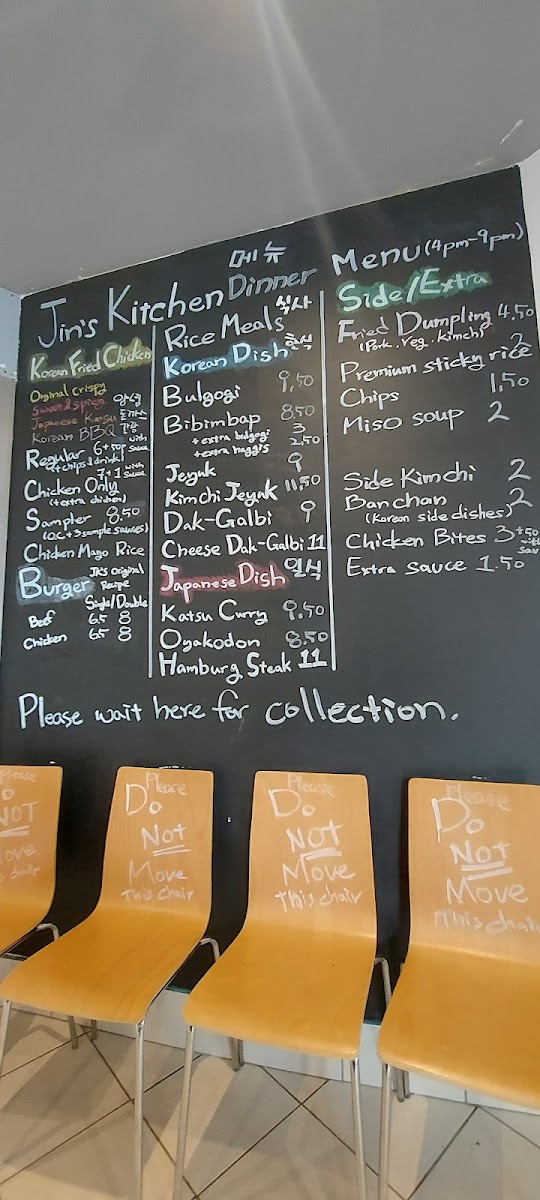 메뉴
Jin's Kitchen Dinner Menu (4pm-9pm)
Korean Fried Chicken
Original crispy
Sweet & spicy 양념
Japanese Katsu 돈까스
Korean BBQ
Regular 6+1 with sauce
(+chips & drink)
Chicken Only 7+1 with sauce
(+extra chicken)
Sampler 8.50
(OC+3 sample sauces)
Chicken Mayo Rice
Burger JK's Original Recipe
Single/Double
Beef 6.5 8
Chicken 6.5 8
Rice Meals 식사
Korean Dish 한식
Bulgogi 9.50
Bibimbap 8.50
+extra bulgogi 3
+extra haggis 2.50
Jeyuk 9
Kimchi Jeyuk 11.50
Dak-Galbi 9
Cheese Dak-Galbi 11
Japanese Dish 일식
Katsu Curry 9.50
Oyakodon 8.50
Hamburg Steak 11
Side/Extra
Fried Dumpling 4.50
(Pork. Veg. Kimchi)
Premium sticky rice 2
Chips 1.50
Miso soup 2
Side Kimchi 2
Banchan 2
(Korean side dishes)
Chicken Bites 3 +50 with sau
Extra sauce 1.50
Please wait here for collection.
Please
Do
NOT
Move
this chair
Please
Do
Not
Move
This chair
Please
Do
NOT
Move
This chair
Please
Do
Not
Move
This chair